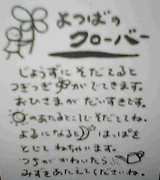 よつばの
クローバー
じょうずにそだてると
つぎつぎ がでてきます。
おひさまがだいすきです。
のあたるとこにそだててね。
よるになると はっぱを
とじてねちゃいます。
つちがかわいたら
みずをあたえくださいね。